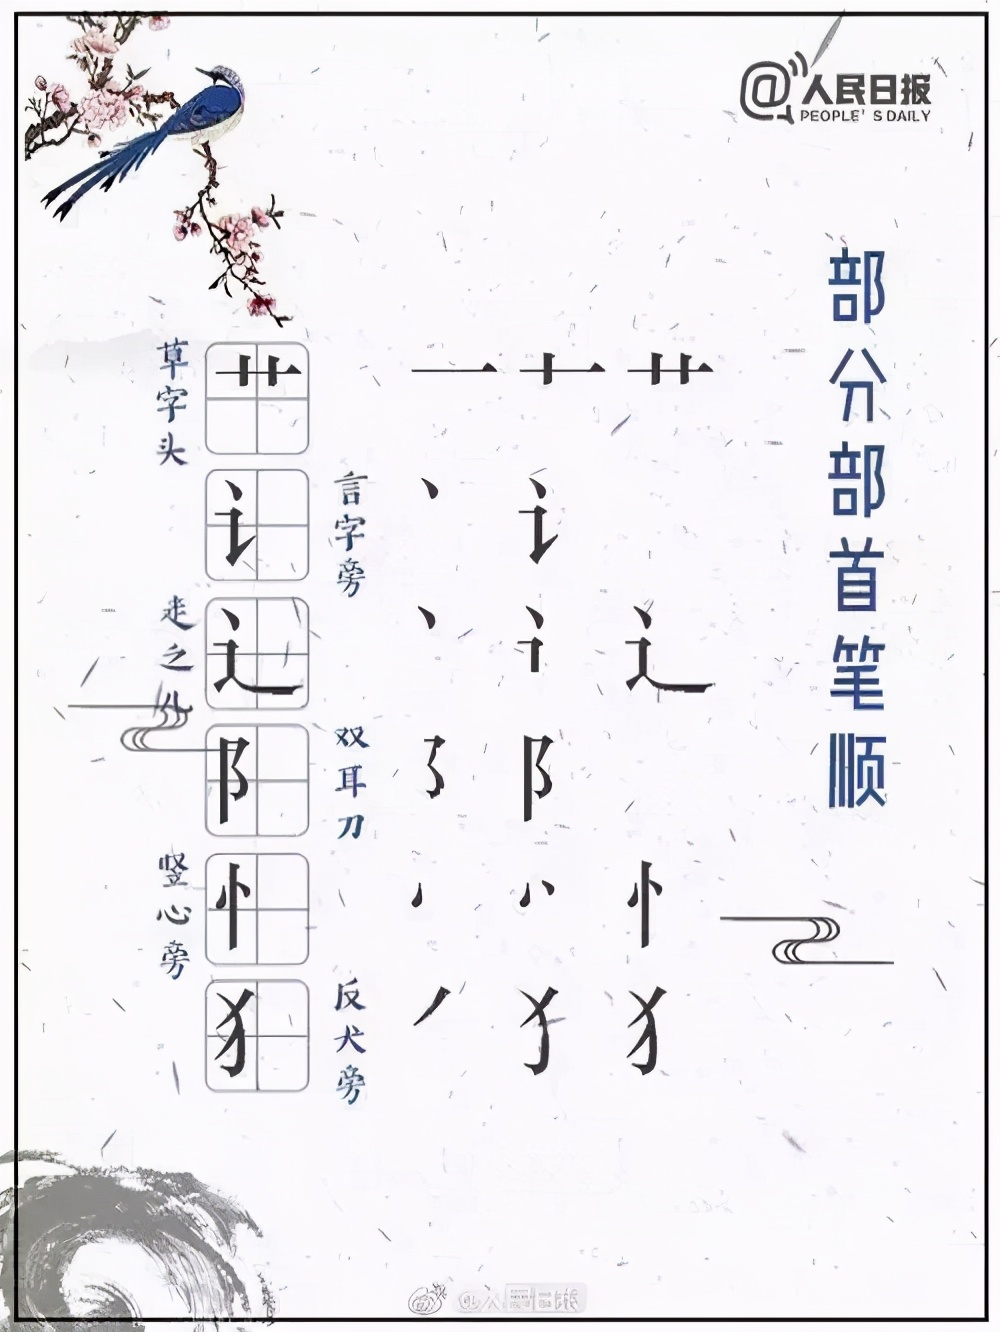 @人民日报
PEOPLE'S DAILY
部分部首笔顺
草字头
艹 一 十 艹
言字旁
讠 丶 讠
走之儿
辶 丶 辶
双耳刀
阝 ㇌ 阝
竖心旁
忄 忄
反犬旁
犭 ㇒ 犭
@人民日报